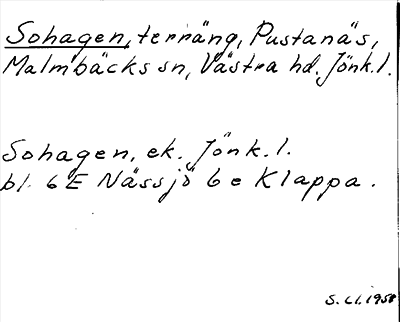 Sohagen, terräng, Pustanäs,
Malmbäcks sn, Västra hd. Jönk. l.
Sohagen, ek. Jönk. l.
bl. 6E Nässjö 6e Klappa.
S. Li. 1958